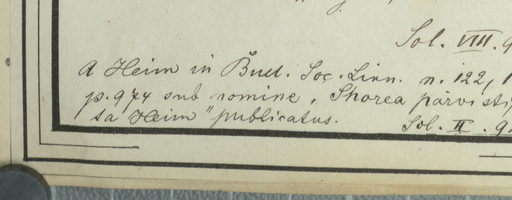 Sol. VIII. 9
A Heim in Bull. Soc. Linn. n. 122, 1
p. 974 sub nomine „Shorea parvisti
ta Heim" publicatus.
Sol. II. 9